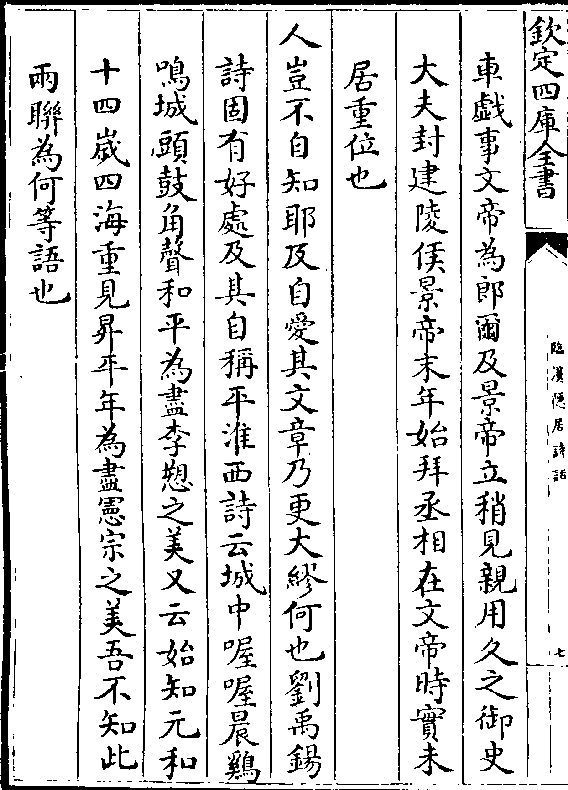 欽定四庫全書
臨漢隱居詩話
七
車戲事文帝為郎爾及景帝立稍見親用久之御史
大夫封建陵侯景帝末年始拜丞相在文帝時實未
居重位也
人豈不自知耶及自愛其文章乃更大繆何也劉禹錫
詩固有好處及其自稱平淮西詩云城中喔喔晨鷄
鳴城頭鼓角聲和平為盡李愬之美又云始知元和
十四嵗四海重見昇平年為盡憲宗之美吾不知此
兩聯為何等語也